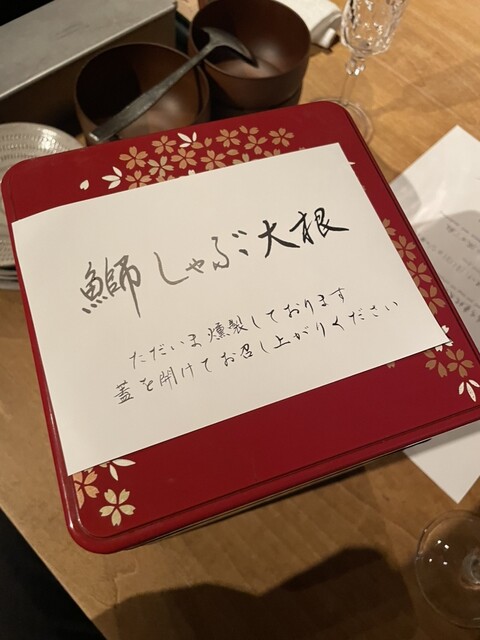 鰤しゃぶ大根
ただいま燻製しております
蓋を開けてお召し上がりください